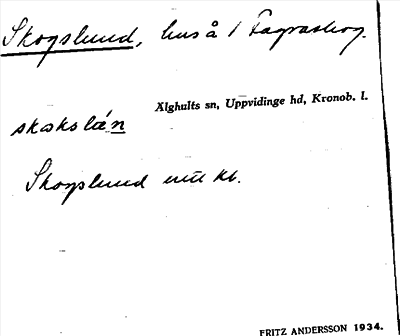 Skogslund, hus å 1 Fagraskog.
Älghults sn, Uppvidinge hd, Kronob. l.
skɷkslán
Skogslund enl. kb.
FRITZ ANDERSSON 1934.